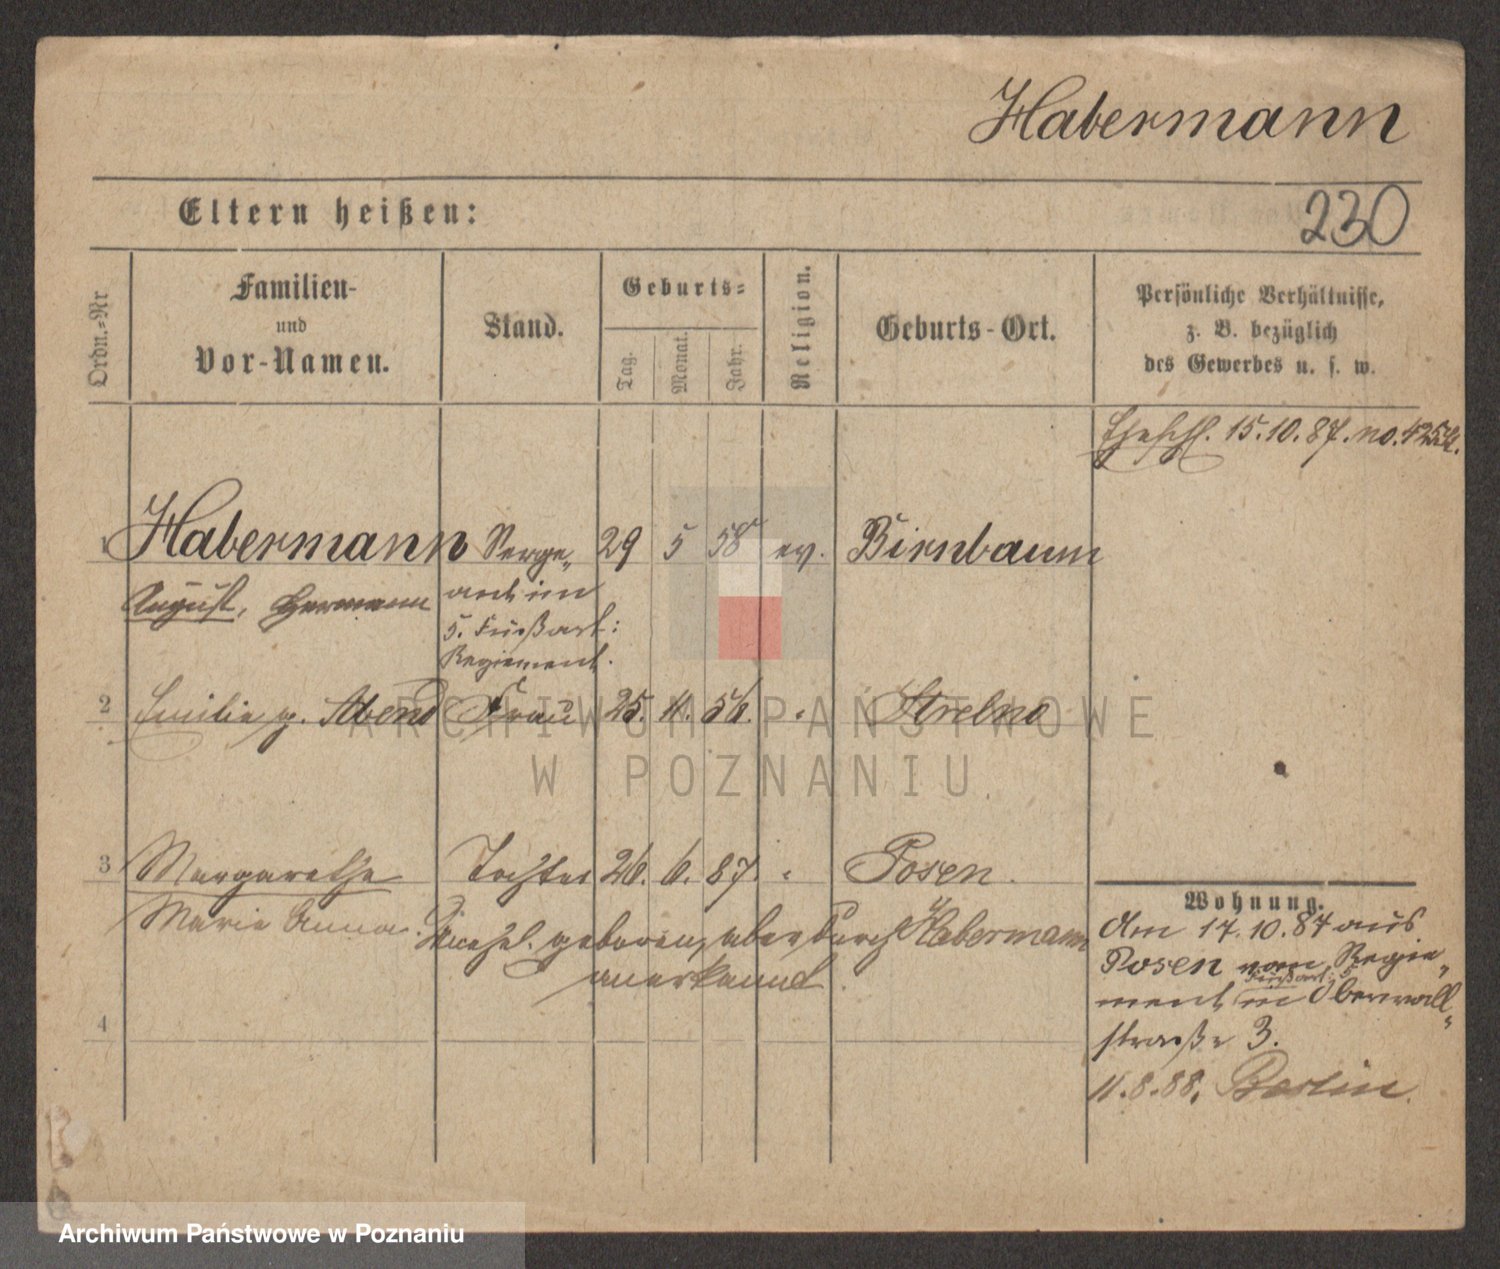 Habermann
Eltern heißen:
230
Ordn.-Nr.
Familien-
und
Vor-Namen.
Stand.
Geburts-
Tag.
Monat.
Jahr.
Religion.
Geburts-Ort.
Persönliche Verhältnisse,
z. B. bezüglich
des Gewerbes u. s. w.
Eheschl. 15.10.87. no. 425
1 Habermann Serge„ 29 5 58 ev. Birnbaum
August, Hermann ant im
5. Fußart:
Regiement.
2 Emilie g. Abend Frau 25. 11. 56. " Strelno
ARCHIWUM PAŃSTWOWE
W POZNANIU
3 Margarethe Tochter 26. 6. 87. " Posen.
Marie Anna. geboren, aber durch Habermann
anerkannt.
4
Wohnung.
Am 17.10.87 aus
Posen vom Regie„
Fußart. 5
ment in Oberwall„
straße 3.
11.8.88. Berlin.
Archiwum Państwowe w Poznaniu